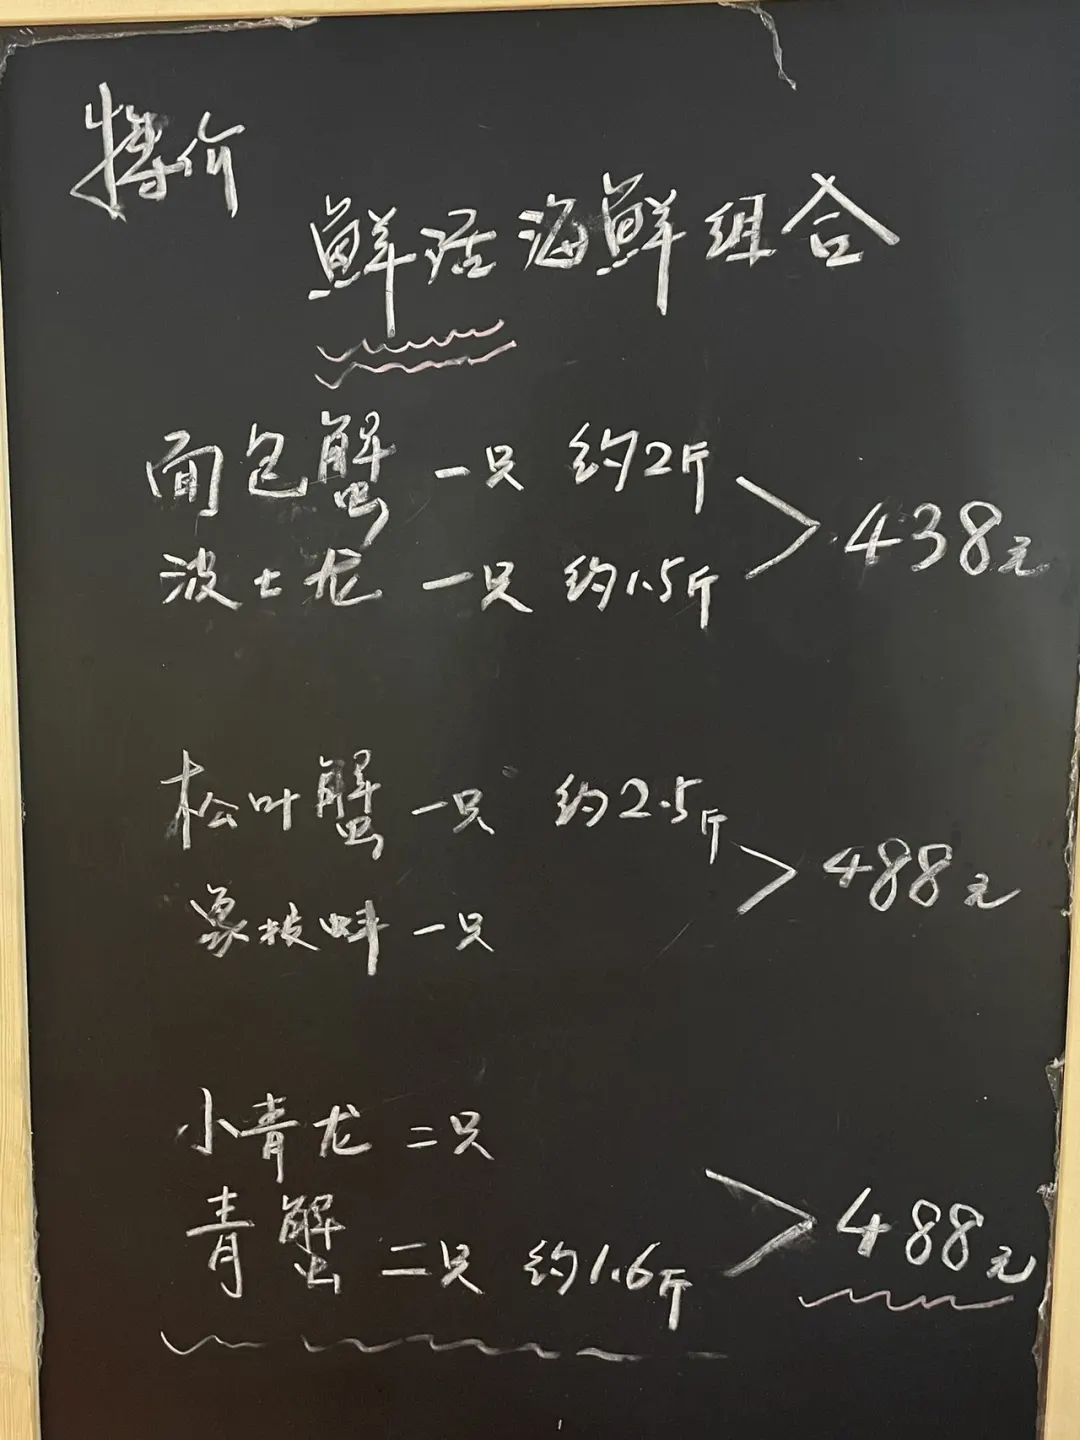 特价
鲜活海鲜组合
面包蟹 一只 约2斤
波士龙 一只 约1.5斤
438元
松叶蟹 一只 约2.5斤
象枝蚌 一只
488元
小青龙 二只
青蟹 二只 约1.6斤
488元